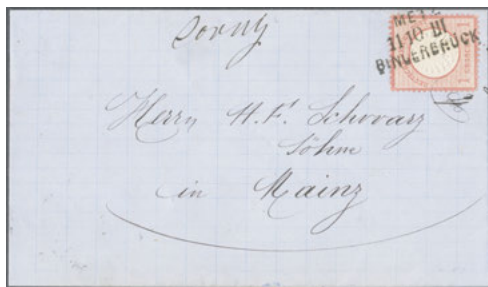 METZ
11 10 III
BINGERBRÜCK
1 1
Herrn H. F. Schwarz
Söhne
in Mainz